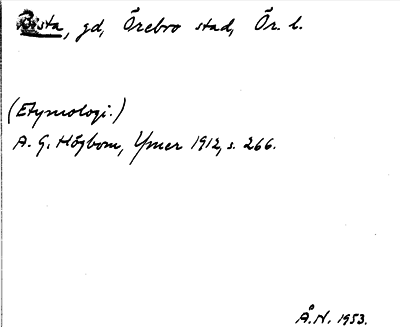 Bista, gd, Örebro stad, Ör. l.
(Etymologi:)
A. G. Högbom, Ymer 1912, s. 266.
Å.N. 1953.